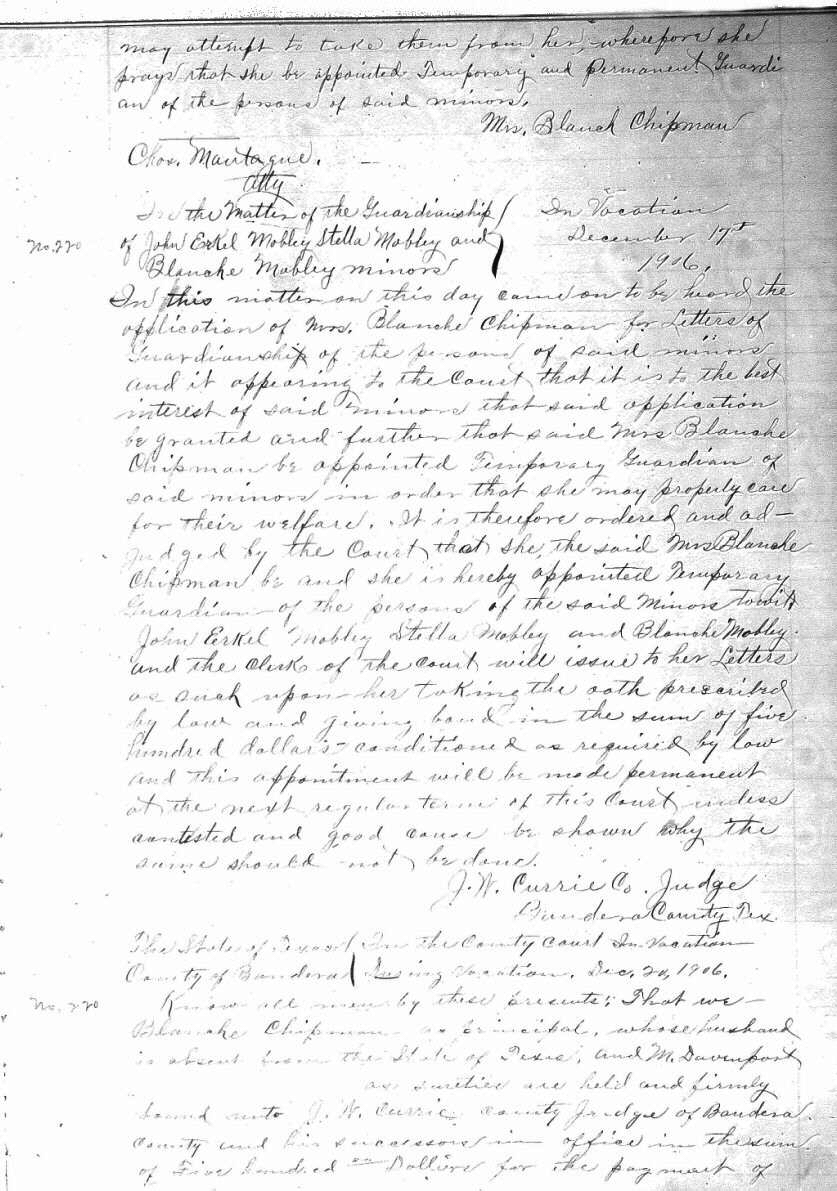 may attempt to take them from her, wherefore she
prays that she be appointed Temporary and permanent Guardi
an of the persons of said minors.
Mrs. Blanch Chipman
Chas. Montague.
Atty
In the Matter of the Guardianship
of John Erkel Mobley Stella Mobley and
Blanche Mobley minors
In Vacation
December 17th
1906.
No. 220
In this matter on this day came on to be heard the
application of Mrs. Blanche Chipman for Letters of
Guardianship of the persons of said minors
and it appearing to the Court that it is to the best
interest of said minors that said application
be granted and further that said Mrs Blanche
Chipman be appointed Temporary Guardian of
said minors in order that she may properly care
for their welfare. It is therefore ordered and ad-
judged by the Court that she, the said Mrs Blanche
Chipman be and she is hereby appointed Temporary
Guardian of the persons of the said Minors towit,
John Erkel Mobley Stella Mobley and Blanche Mobley.
and the Clerk of the Court will issue to her Letters
as such upon her taking the oath prescribed
by law and giving bond in the sum of five
hundred dollars conditioned as required by law
and this appointment will be made permanent
at the next regular term of this Court unless
contested and good cause be shown why the
same should not be done.
J. W. Currie Co. Judge
Bandera County Tex
The State of Texas
County of Bandera
In the County Court In Vacation
Vacation. Dec. 20, 1906.
No. 220
Know all men by these presents: That we
Blanche Chipman as principal, whose husband
is absent from the State of Texas, and M. Davenport
as sureties are held and firmly
bound unto J. W. Currie county Judge of Bandera
County and his successors in office in the sum
of Five hundred Dollars for the payment of